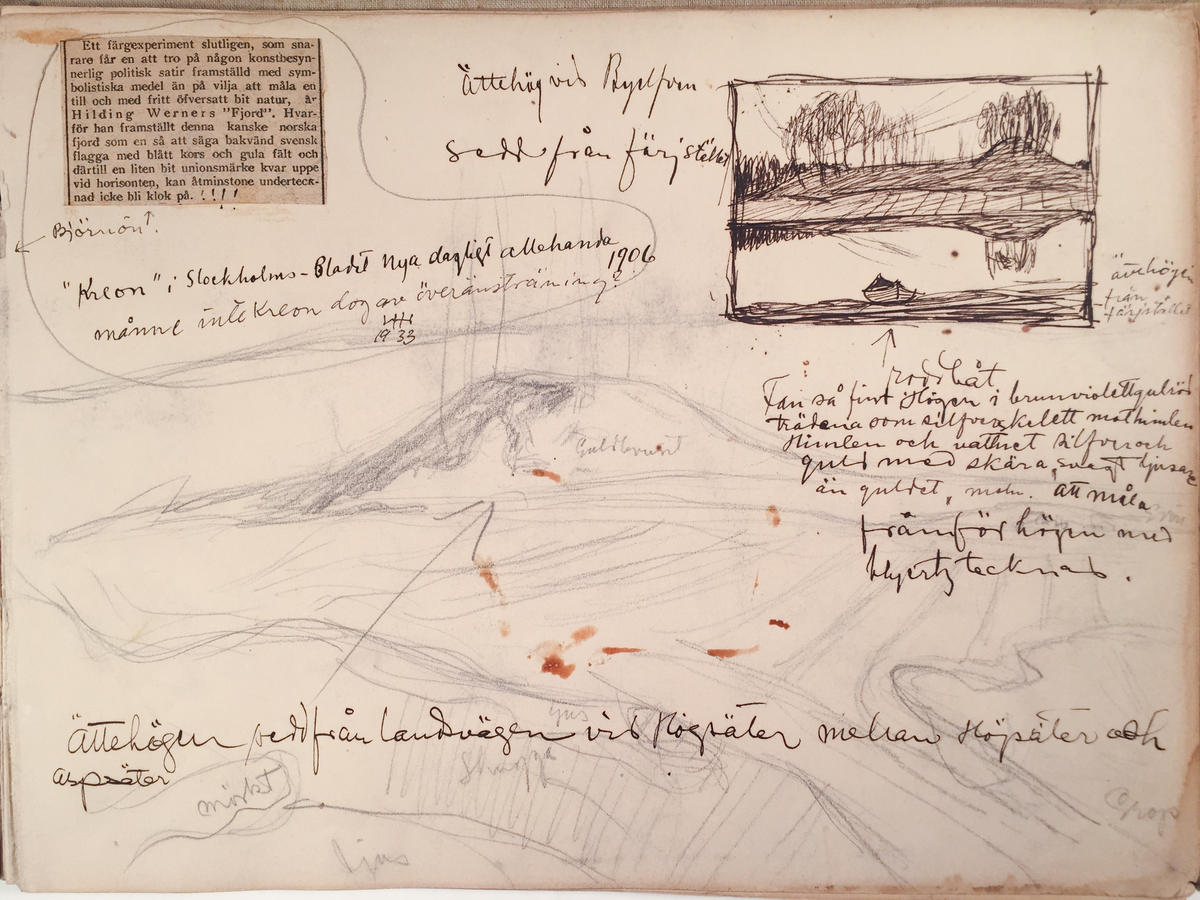 Ett färgexperiment slutligen, som sna-
rare får en att tro på någon konstbesyn-
nerlig politisk satir framställd med sym-
bolistiska medel än på vilja att måla en
till och med fritt öfversatt bit natur, är
Hilding Werners "Fjord". Hvar-
för han framställt denna kanske norska
fjord som en så att säga bakvänd svensk
flagga med blått kors och gula fält och
därtill en liten bit unionsmärke kvar uppe
vid horisonten, kan åtminstone underteck-
nad icke bli klok på. !!!!
Björnön
"Kreon" i Stockholms-Bladet Nya dagligt allehanda
1906
månne inte Kreon dog av överansträning?
1933
Ättehög vid
sedd från färjstället
ättehögen
från
färjstället
roddbåt
Fan så fint Högen i brunviolettgulröd
trädena som silfverskelett mot himlen
Himlen och vattnet silfver och
guld med skära, svagt ljusare
än guldet, Att måla
framför högen med
blyertz tecknad.
Guldbrunt
Ättehögen sedd från landsvägen vid Högsäter mellan Höjsäter och
aspsäter
ljus
Skugga
mörkt
ljus